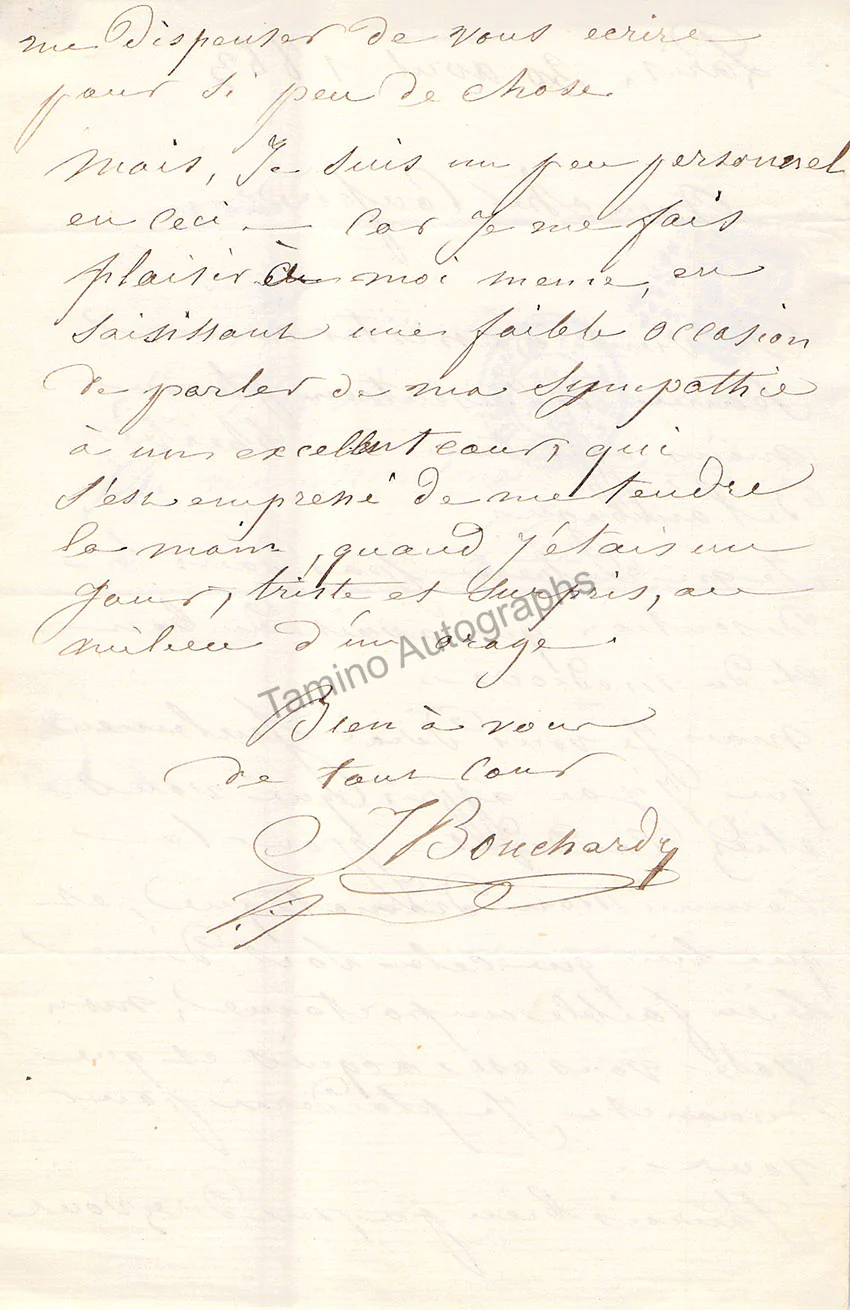 me dispenser de vous ecrire
pour si peu de chose
Mais, Je suis un peu personnel
en ceci — Car Je me fais
plaisir à moi meme, en
saisissant une faible occasion
de parler de ma sympathie
à un excellent cœur, qui
s'est empressé de me tendre
la main, quand J'étais un
Jour, triste et surpris, au
milieu d'un orage.
Bien à vous
de tout cœur
J Bouchardy
Tamino Autographs